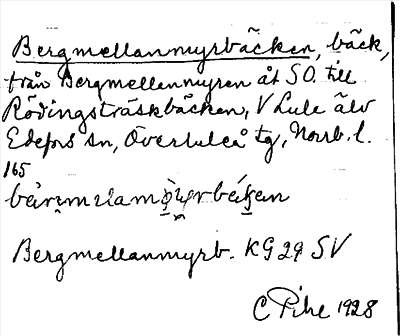 Bergmellanmyrbäcken, bäck,
från Bergmellanmyren åt SO. till
Rödingsträskbäcken, V Lule älv
Edefors sn, Överluleå tg, Norrb. l.
165
Bergmellanmyrb. KG 29 SV
C Pihl 1928